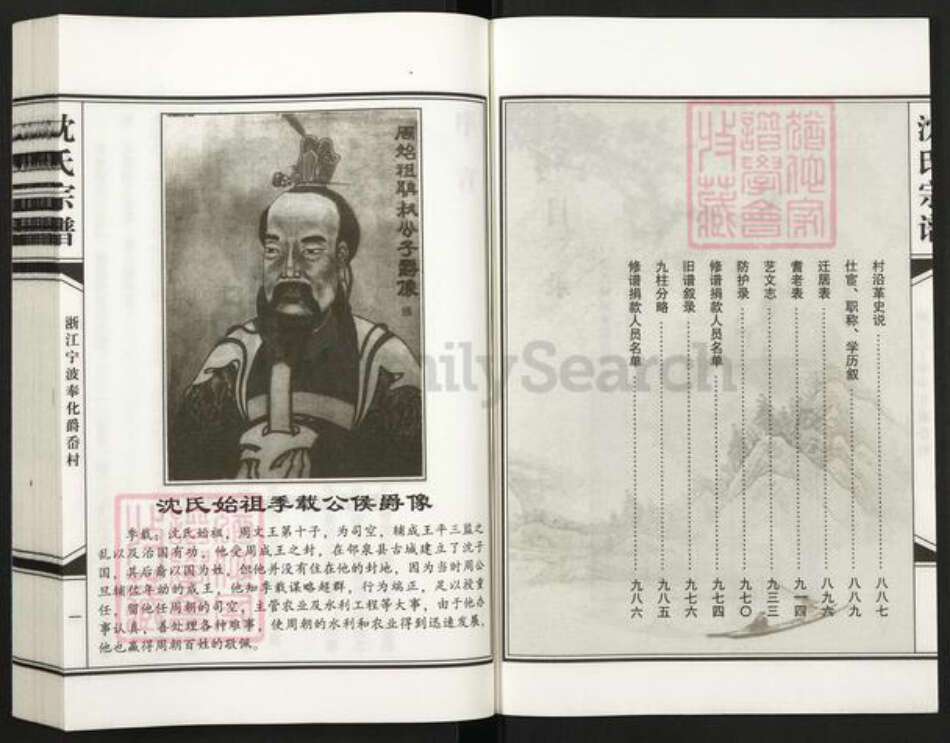 沈氏宗谱
村沿革史说 八八七
仕宦、职称、学历叙 八八九
迁居表 八九六
耆老表 九一四
艺文志 九三三
防护录 九七〇
修谱捐款人员名单 九七四
旧谱叙录 九七六
九柱分略 九八五
修谱捐款人员名单 九八六
猶他家
譜學會
收藏
FamilySearch
沈氏宗谱
浙江宁波奉化爵岙村
一
沈氏始祖季载公侯爵像
季载，沈氏始祖，周文王第十子，为司空，辅成王平三监之
乱以及治国有功。他受周成王之封，在邻泉县古城建立了沈子
国，其后裔以国为姓，但他并没有住在他的封地，因为当时周公
旦辅佐年幼的成王，他知季载谋略超群，行为端正，足以授重
任，留他任周朝的司空，主管农业及水利工程等大事，由于他办
事认真，善处理各种难事，使周朝的水利和农业得到迅速发展，
他也赢得周朝百姓的敬佩。